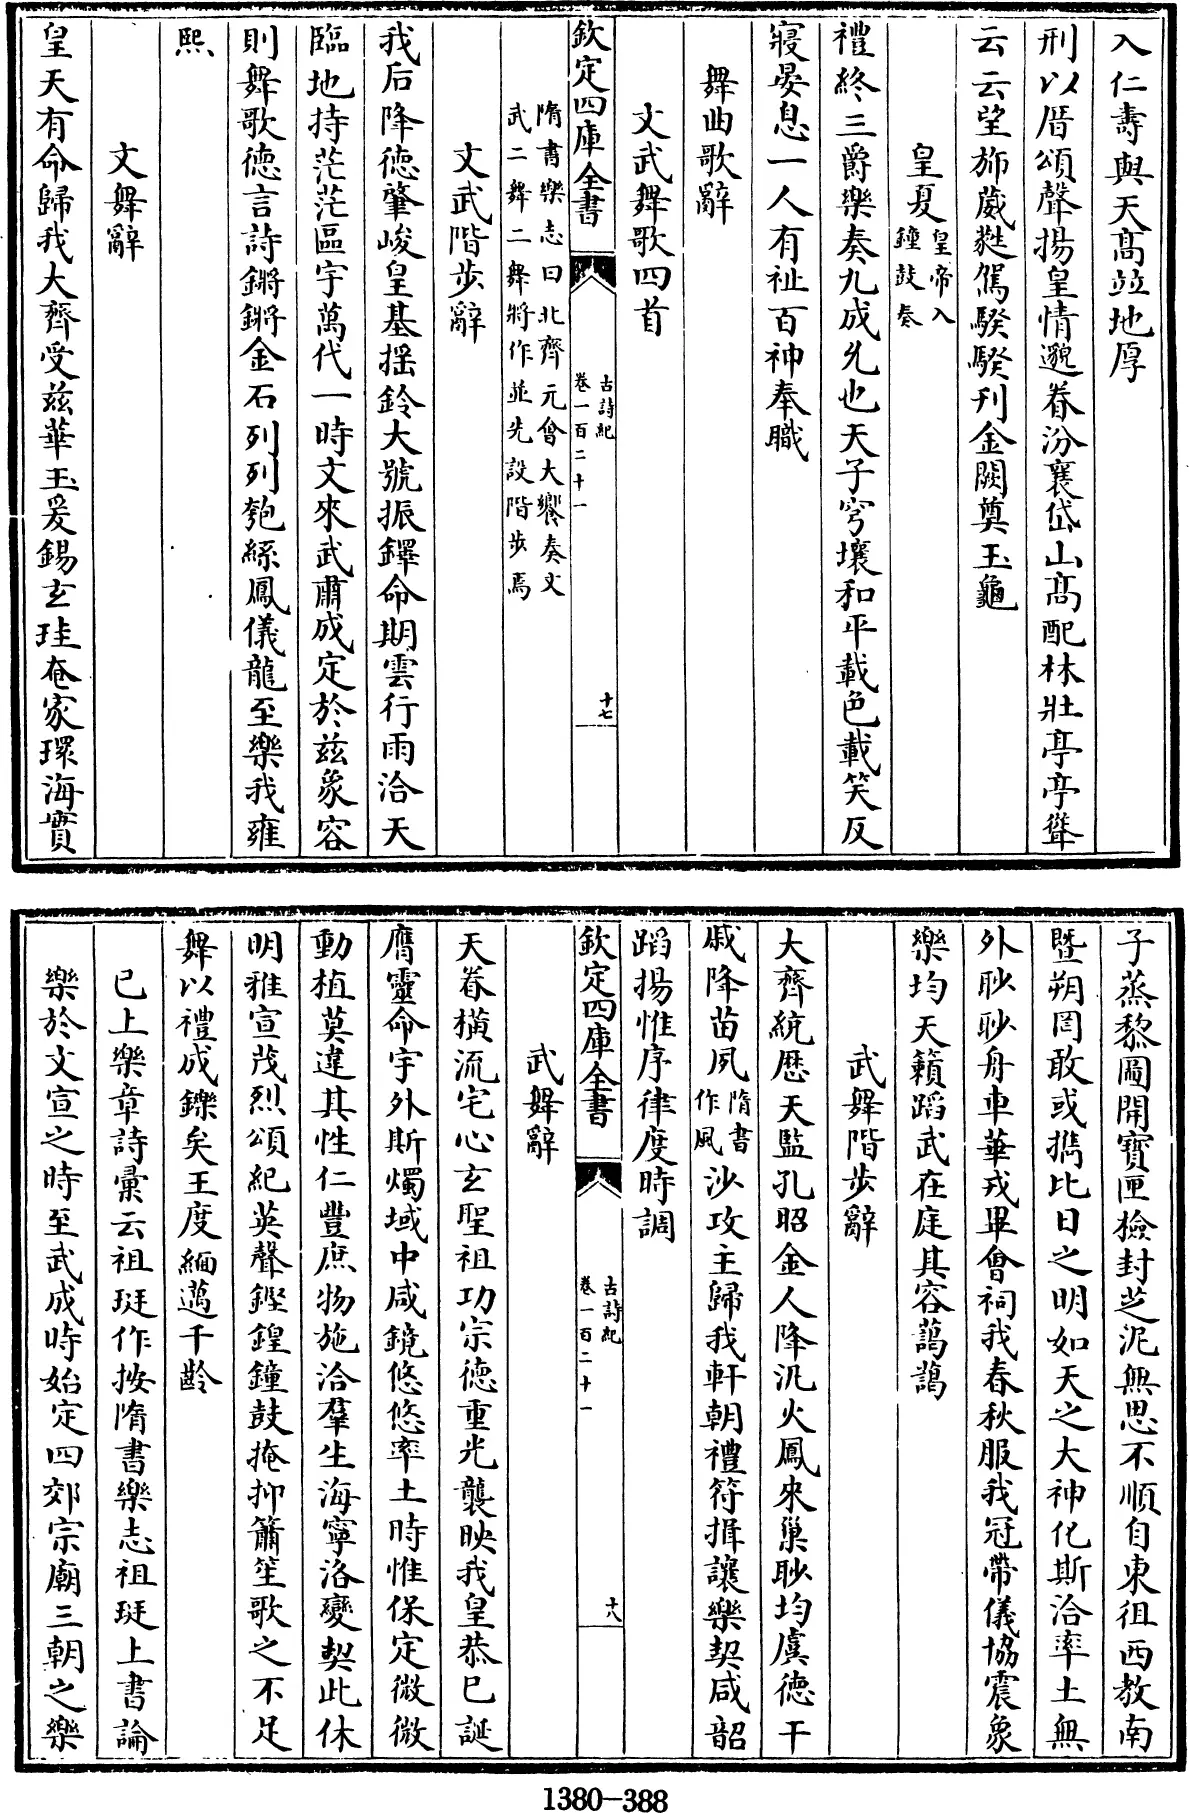 入仁壽與天髙竝地厚
刑以厝頌聲揚皇情邈眷汾襄岱山髙配林壯亭亭聳
云云望斾葳蕤駕騤騤刋金闕奠玉龜
皇夏皇帝入鐘鼓奏
禮終三爵樂奏九成允也天子穹壤和平載色載笑反
寢晏息一人有祉百神奉職
舞曲歌辭
文武舞歌四首
欽定四庫全書
古詩紀
卷一百二十一
十七
隋書樂志曰北齊元會大饗奏文
武二舞二舞將作並先設階步焉
文武階步辭
我后降徳肇峻皇基揺鈴大號振鐸命期雲行雨洽天
臨地持茫茫區宇萬代一時文來武肅成定於兹象容
則舞歌徳言詩鏘鏘金石列列匏絲鳳儀龍至樂我雍
熙
文舞辭
皇天有命歸我大齊受兹華玉爰錫玄珪奄家環海實
子蒸黎圖開寳匣檢封芝泥無思不順自東徂西教南
暨朔罔敢或攜比日之明如天之大神化斯洽率土無
外眇眇舟車華戎畢會祠我春秋服我冠帶儀協震象
樂均天籟蹈武在庭其容藹藹
武舞階步辭
大齊統歴天監孔昭金人降汎火鳳來巢眇均虞徳干
戚降苗夙隋書作風沙攻主歸我軒朝禮符揖讓樂契咸韶
蹈揚惟序律度時調
欽定四庫全書
古詩紀
卷一百二十一
十八
武舞辭
天眷横流宅心玄聖祖功宗徳重光襲映我皇恭已誕
膺靈命宇外斯燭域中咸鏡悠悠率土時惟保定微微
動植莫違其性仁豐庶物施洽羣生海寧洛變契此休
明雅宣茂烈頌紀英聲鏗鍠鐘鼓掩抑簫笙歌之不足
舞以禮成鑠矣王度緬邁千齡
已上樂章詩彚云祖珽作按隋書樂志祖珽上書論
樂於文宣之時至武成時始定四郊宗廟三朝之樂
1380-388